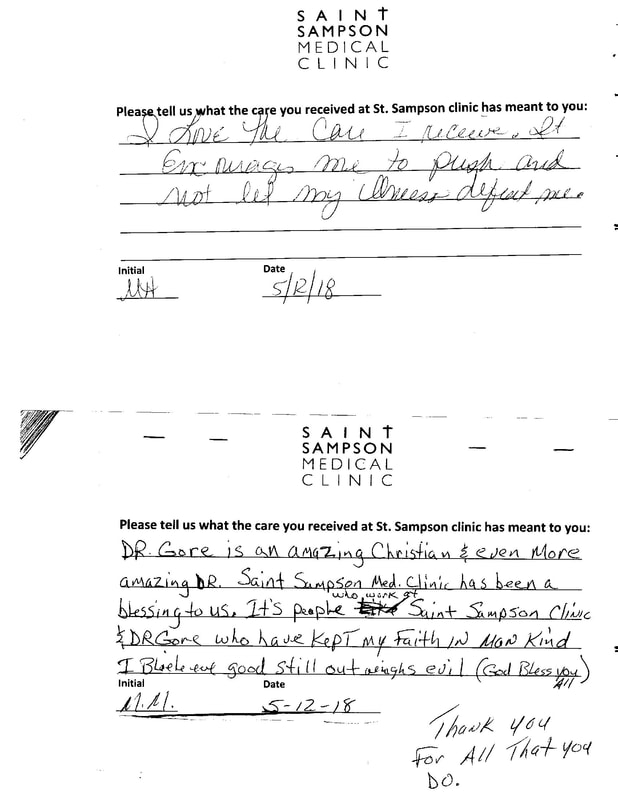 SAINT
SAMPSON
MEDICAL
CLINIC
Please tell us what the care you received at St. Sampson clinic has meant to you:
I Love the Care I receive. It
Encourages me to push and
not let my illness defeat me.
Initial Date
MH 5/12/18
SAINT
SAMPSON
MEDICAL
CLINIC
Please tell us what the care you received at St. Sampson clinic has meant to you:
DR. Gore is an amazing Christian & even More
amazing DR. Saint Sampson Med. Clinic has been a
blessing to us. It's people who work at Saint Sampson Clinic
& DR Gore who have KepT my Faith IN Man Kind
I Bleieve good still out weighs evil (God Bless you All)
Initial Date
M.M. 5-12-18
Thank you
For All That you
Do.